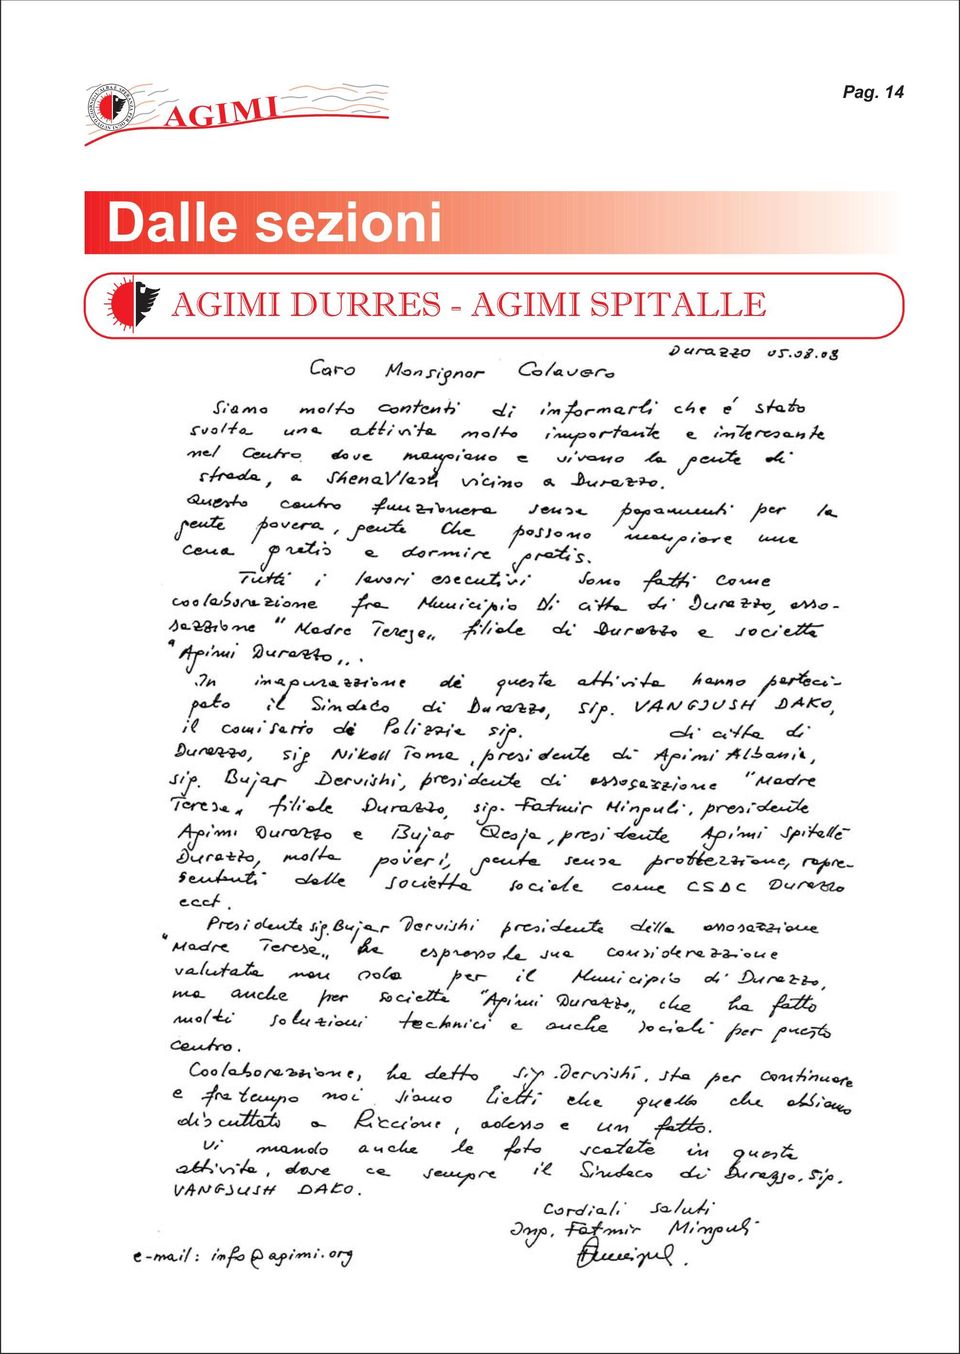 AGIMI
Pag. 14
Dalle sezioni
AGIMI DURRES - AGIMI SPITALLE
Durazzo 05.08.08
Caro Monsignor Colavero
Siamo molto contenti di informarli che é stato
svolta una attivita molto importante e interesante
nel Centro dove mangiano e vivano la gente di
strada, a ShenaVlash vicino a Durazzo.
Questo centro funzionera sensa pagamenti per la
gente povera, gente che possono mangiare una
cena gratis e dormire gratis.
Tutti i lavori esecutivi sono fatti come
coolaborazione fra Municipio Di citta di Durazzo, asso-
sazzione "Madre Terese„ filiale di Durazzo e societta
"Agimi Durazzo„.
In inagurazzione de questa attivita hanno parteci-
pato il Sindaco di Durazzo, sig. VANGJUSH DAKO,
il comisario de Polizzia sig. di citta di
Durazzo, sig Nikoll Toma, presidente di Agimi Albania,
sig. Bujar Dervishi, presidente di assogazzione "Madre
Terese„ filiale Durazzo, sig. Fatmir Minguli, presidente
Agimi Durazzo e Bujar Qeoja, presidente Agimi Spitallë
Durazzo, molta poveri, gente sensa prottezzione, repre-
sententi delle societta sociale come CSDC Durazzo
ecct.
Presidente sig. Bujar Dervishi presidente della assosazzione
"Madre Terese„ ha espresso la sua considerazzione
valutata non solo per il Municipio di Durazzo,
ma anche per societta "Agimi Durazzo„ che ha fatto
molti soluzioni technici e anche sociali per questo
centro.
Coolaborazzione, ha detto sig. Dervishi, sta per continuare
e fra tempo noi siamo lietti che quello che abbiamo
discuttato a Riccione, adesso e un fatto.
Vi mando anche le foto scatate in questa
attivita, dove ce sempre il Sindaco di Durazzo. Sig.
VANGJUSH DAKO.
Cordiali saluti
Ing. Fatmir Minguli
e-mail: info@agimi.org